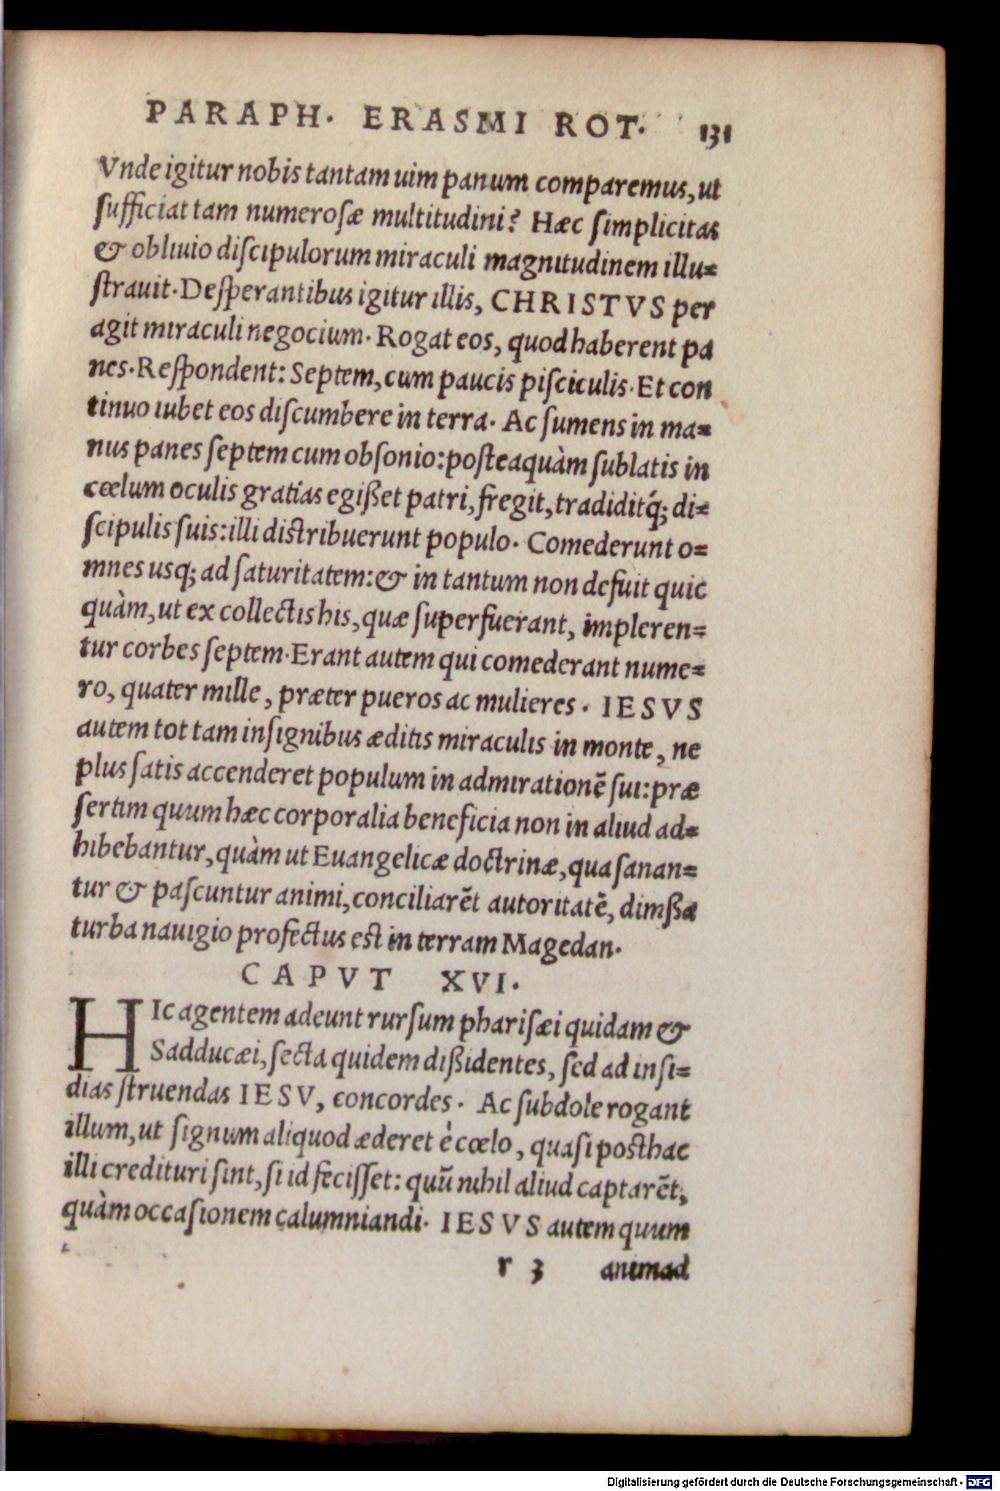 PARAPH. ERASMI ROT. 131
Vnde igitur nobis tantam uim panum comparemus, ut
sufficiat tam numerosæ multitudini? Hæc simplicitas
& obliuio discipulorum miraculi magnitudinem illu=
strauit. Desperantibus igitur illis, CHRISTVS per
agit miraculi negocium. Rogat eos, quod haberent pa
nes. Respondent: Septem, cum paucis pisciculis. Et con
tinuo iubet eos discumbere in terra. Ac sumens in ma=
nus panes septem cum obsonio: posteaquàm sublatis in
cœlum oculis gratias egißet patri, fregit, tradiditq́; di=
scipulis suis: illi distribuerunt populo. Comederunt o=
mnes usq; ad saturitatem: & in tantum non defuit quic
quàm, ut ex collectis his, quæ superfuerant, impleren=
tur corbes septem. Erant autem qui comederant nume=
ro, quater mille, præter pueros ac mulieres. IESVS
autem tot tam insignibus æditis miraculis in monte, ne
plus satis accenderet populum in admirationē sui: præ
sertim quum hæc corporalia beneficia non in aliud ad=
hibebantur, quàm ut Euangelicæ doctrinæ, qua sanan=
tur & pascuntur animi, conciliarēt autoritatē, dimßa
turba nauigio profectus est in terram Magedan.
CAPVT XVI.
HIc agentem adeunt rursum pharisæi quidam &
Sadducæi, secta quidem dißidentes, sed ad insi=
dias struendas IESV, concordes. Ac subdole rogant
illum, ut signum aliquod æderet è cœlo, quasi posthac
illi credituri sint, si id fecisset: quū nihil aliud captarēt,
quàm occasionem calumniandi. IESVS autem quum
r 3 animad
Digitalisierung gefördert durch die Deutsche Forschungsgemeinschaft - DFG